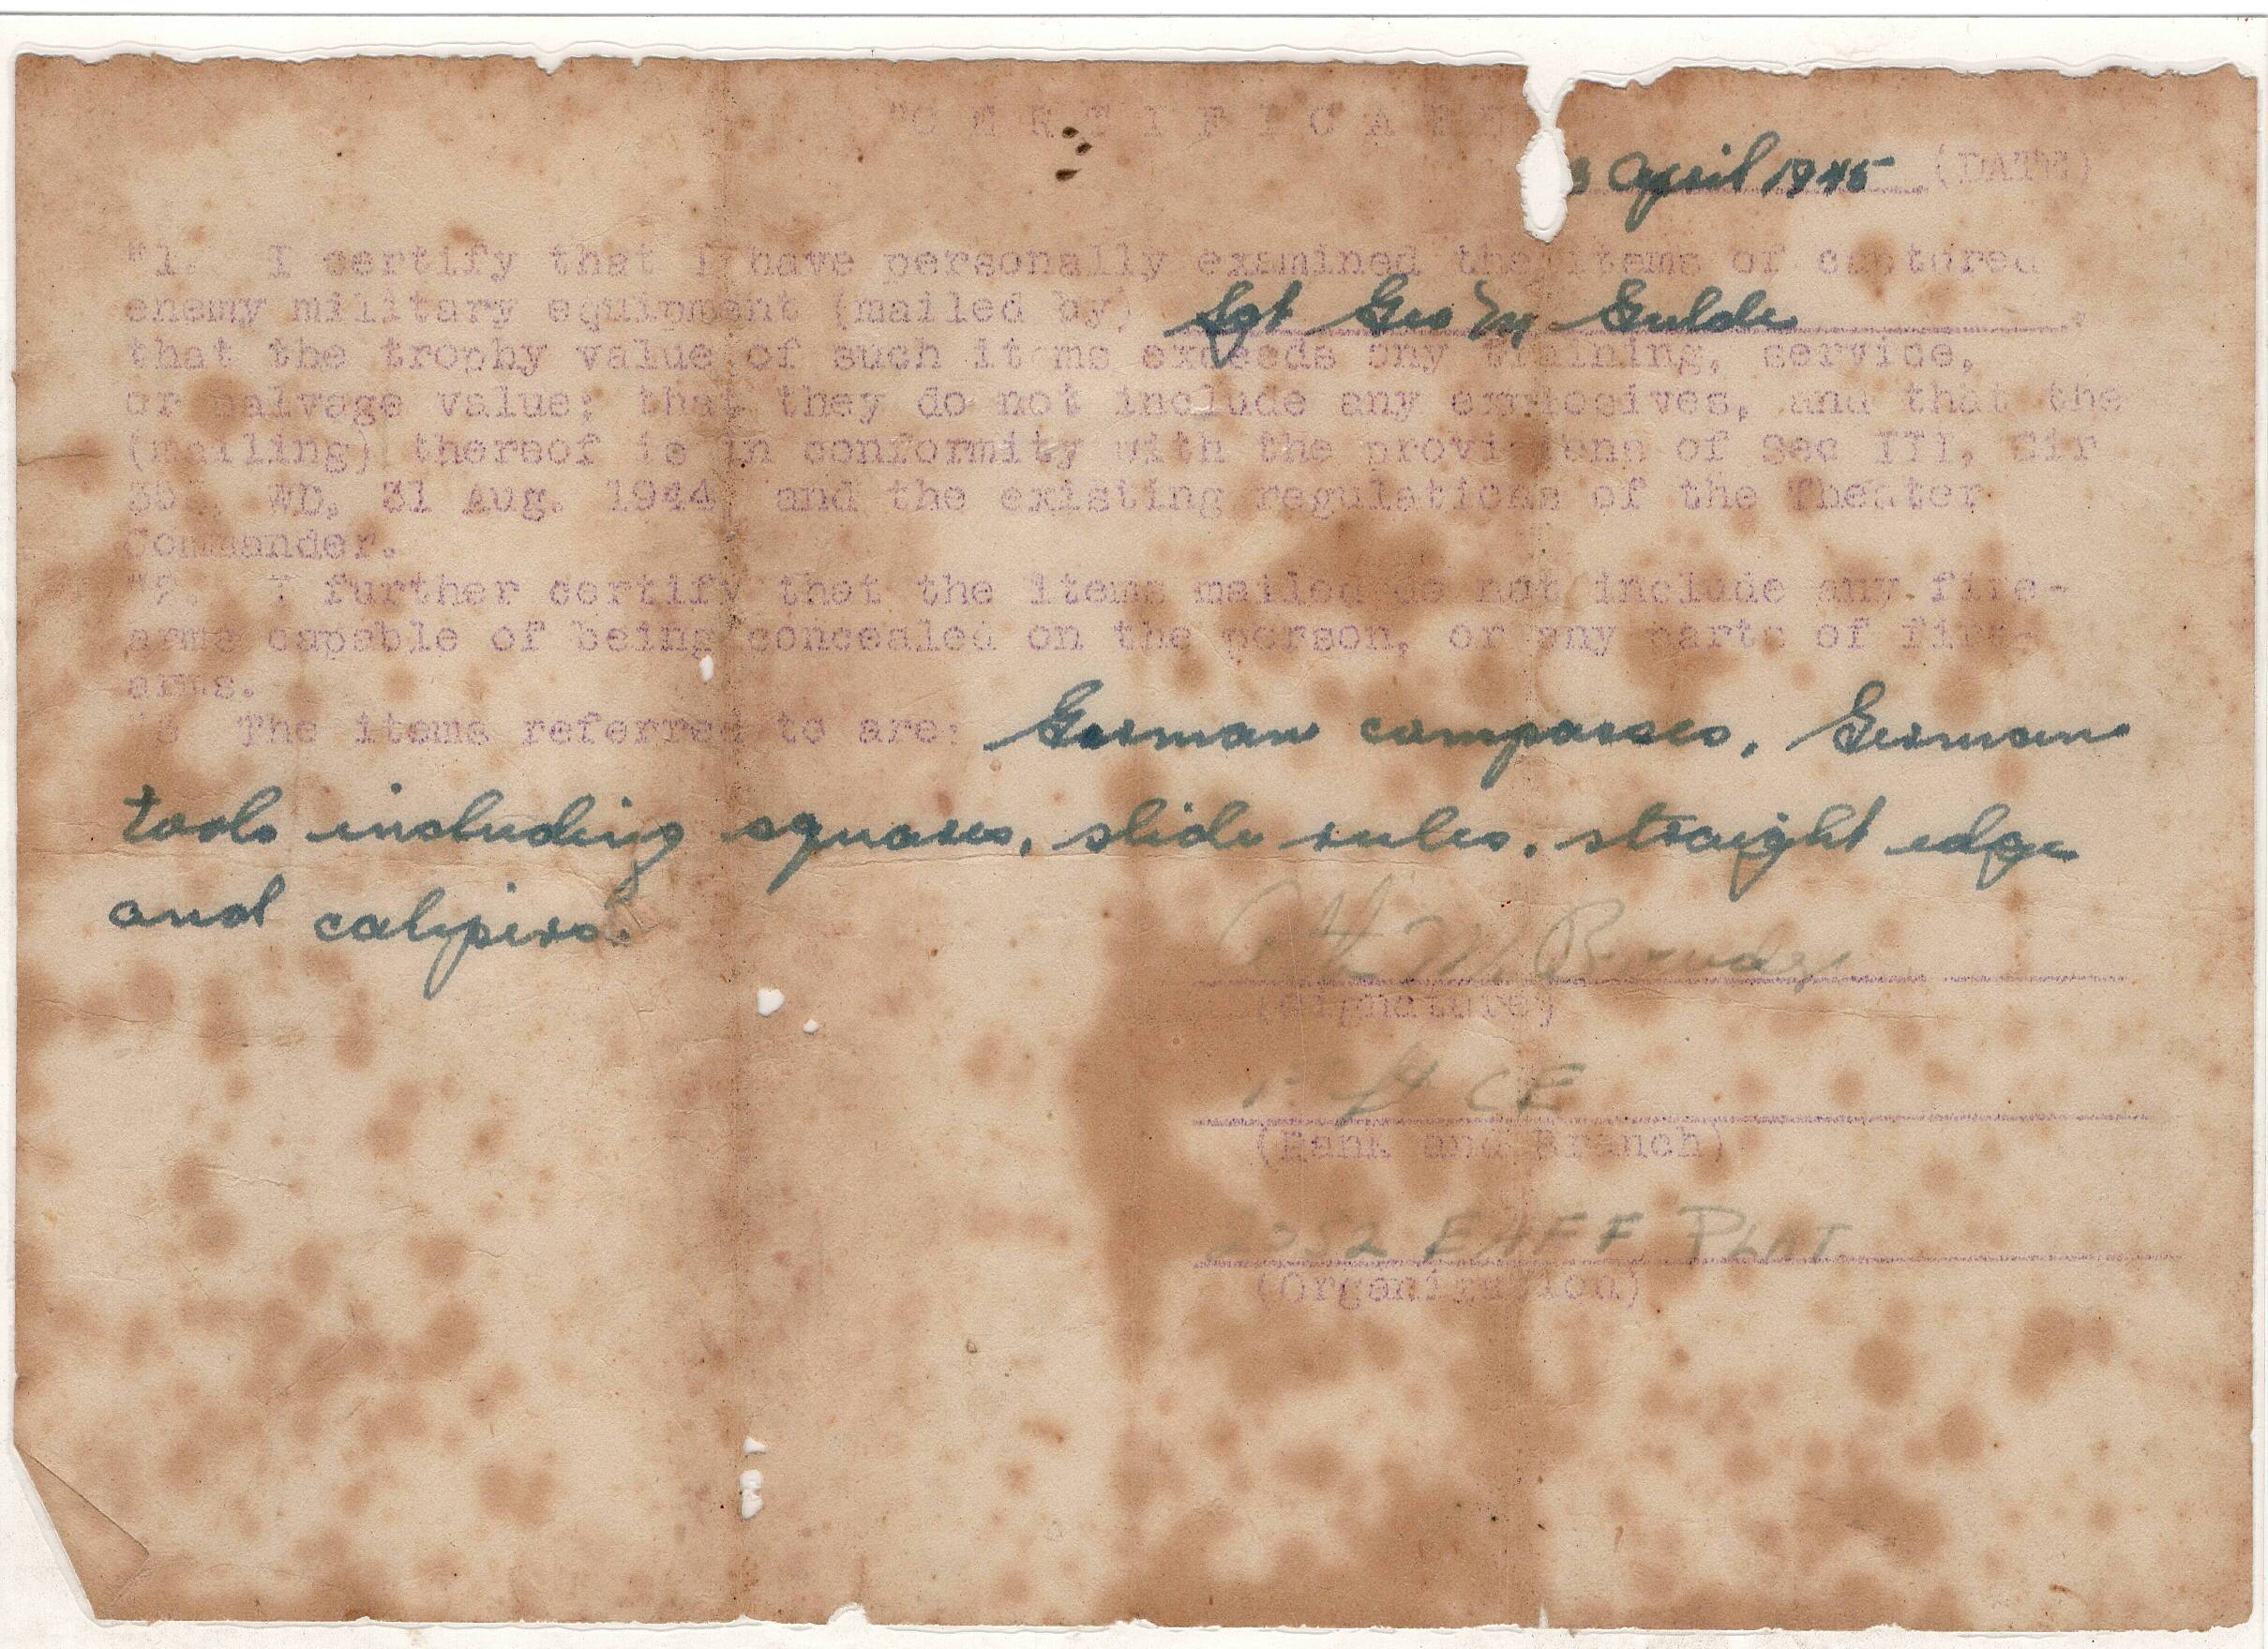 "C E R T I F I C A T E
3 April 1945 (DATE)
"1. I certify that I have personally examined the items of captured
enemy military equipment (mailed by) Sgt Geo M Gulde
that the trophy value of such items exceeds any training, service,
or salvage value; that they do not include any explosives, and that the
(mailing) thereof is in conformity with the provisions of Sec III, Cir
WD, 31 Aug. 1944 and the existing regulations of the Theater
Commander.
"2. I further certify that the items mailed do not include any fire-
arms capable of being concealed on the person, or any parts of fire-
arms.
"3 The items referred to are: German compasses, German
tools including squares, slide rules, straight edge
and calipers.
M.
(Signature)
1st Lt CE
(Rank and Branch)
EAFF PLAT
(Organization)